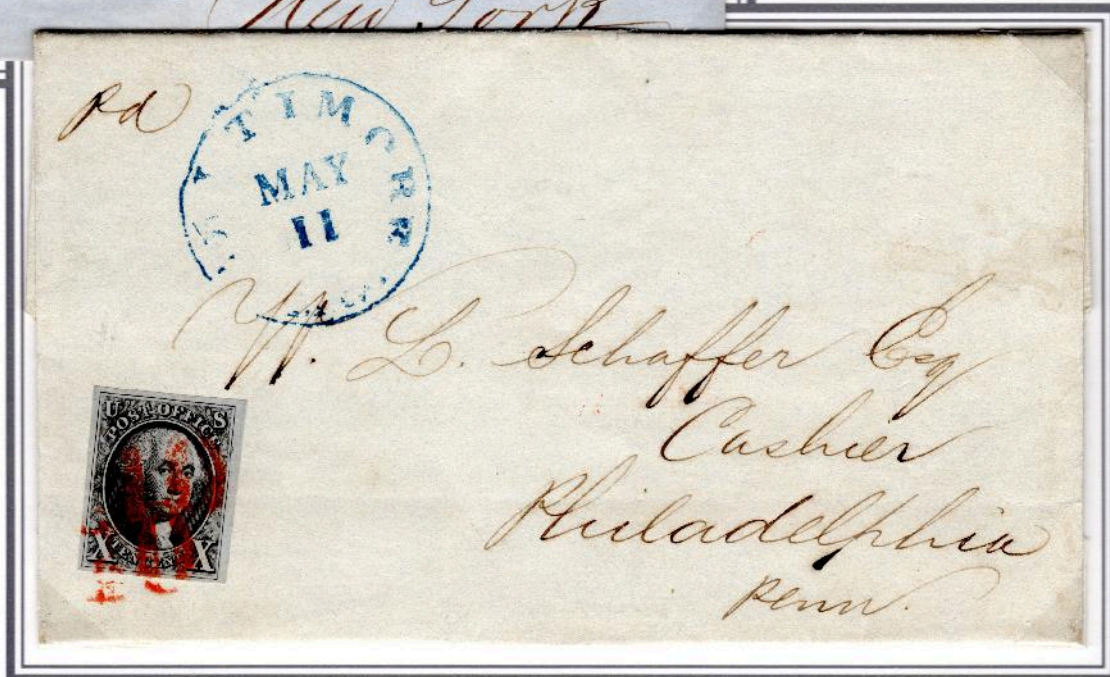 New York
pd
TIMORE
MAY
11
W. L. Schaffer Esq
Cashier
Philadelphia
Penn.
U S
POST OFFICE
X TEN CENTS X